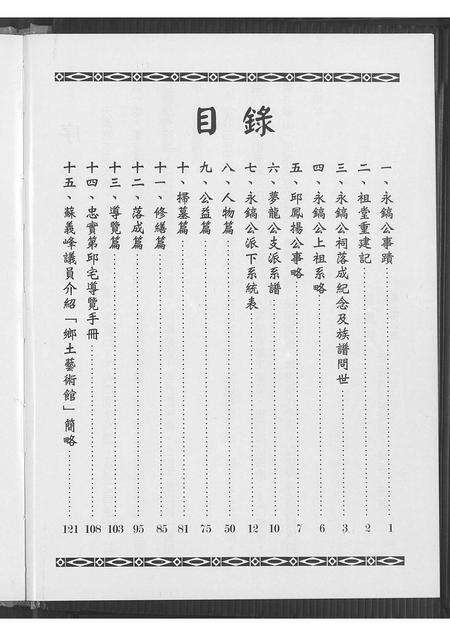 目錄
一、永鎬公事蹟……1
二、祖堂重建記……2
三、永鎬公祠落成紀念及族譜問世……3
四、永鎬公上祖系略……6
五、邱鳳揚公事略……7
六、夢龍公支派系譜……10
七、永鎬公派下系統表……12
八、人物篇……50
九、公益篇……75
十、掃墓篇……81
十一、修繕篇……85
十二、落成篇……95
十三、導覽篇……103
十四、忠實第邱宅導覽手冊……108
十五、蘇義峰議員介紹「鄉土藝術館」簡略……121